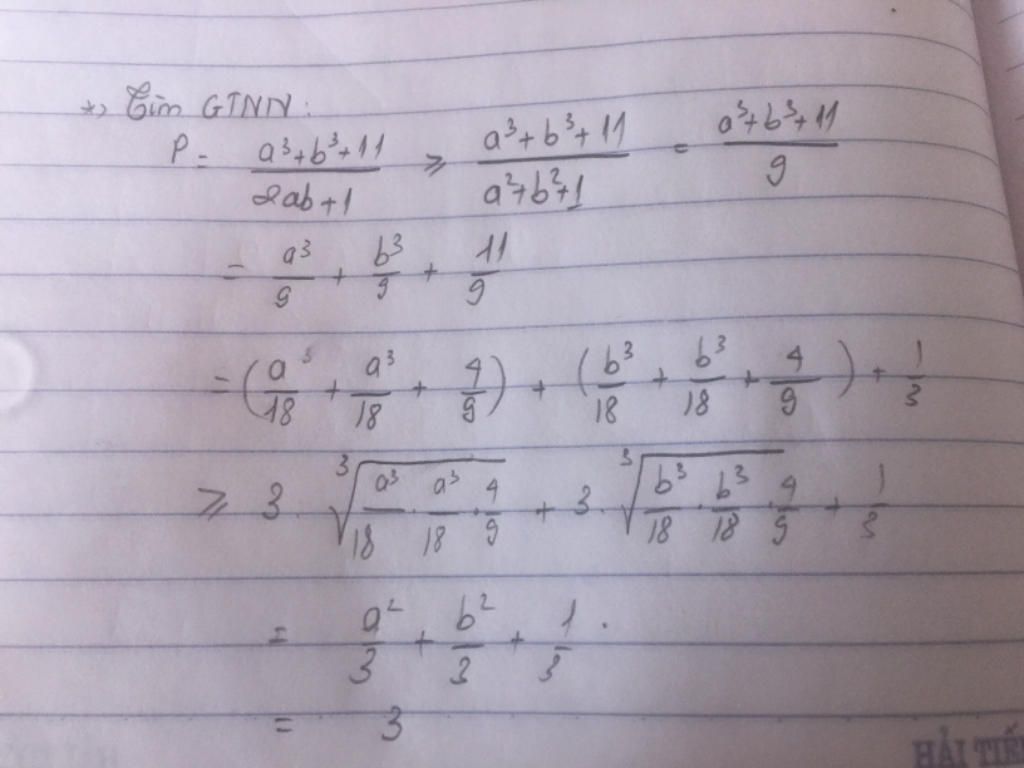 *) Tìm GTNN:
P = \frac{a³+b³+11}{2ab+1} ⩾ \frac{a³+b³+11}{a²+b²+1} = \frac{a³+b³+11}{9}
= \frac{a³}{9} + \frac{b³}{9} + \frac{11}{9}
= (\frac{a³}{18} + \frac{a³}{18} + \frac{4}{9}) + (\frac{b³}{18} + \frac{b³}{18} + \frac{4}{9}) + \frac{1}{3}
⩾ 3. \sqrt[3]{\frac{a³}{18} . \frac{a³}{18} . \frac{4}{9}} + 3. \sqrt[3]{\frac{b³}{18} . \frac{b³}{18} . \frac{4}{9}} + \frac{1}{3}
= \frac{a²}{3} + \frac{b²}{3} + \frac{1}{3} .
= 3
HẢI TIẾN